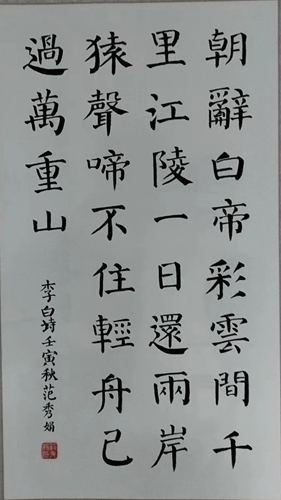 朝辭白帝彩雲間千
里江陵一日還兩岸
猿聲啼不住輕舟已
過萬重山
李白詩壬寅秋范秀娟